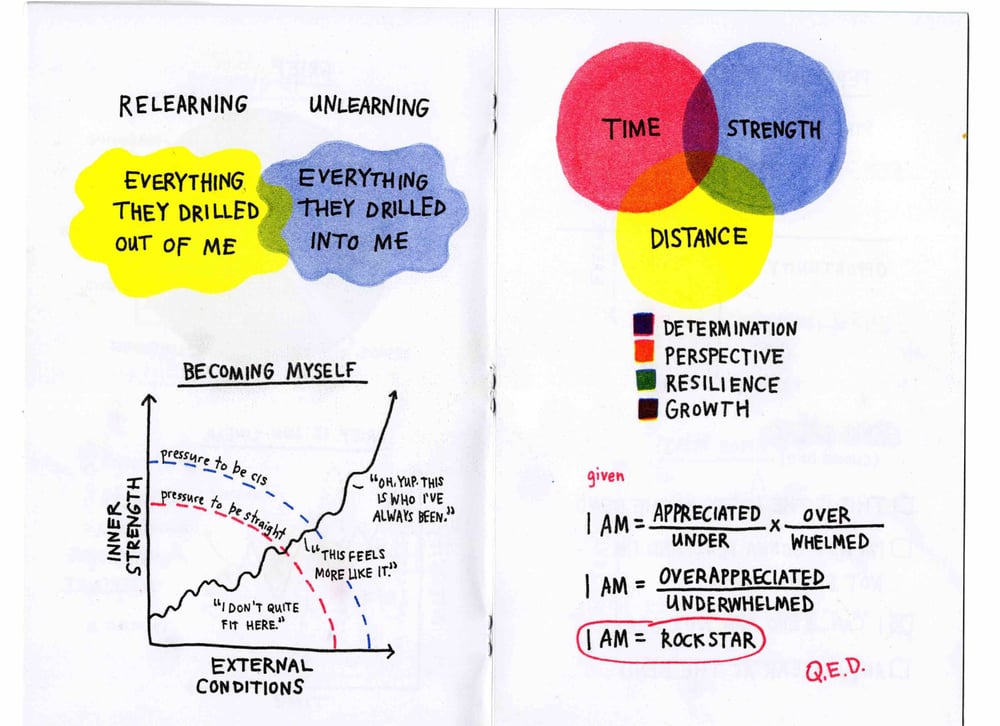 RELEARNING
UNLEARNING
EVERYTHING
THEY DRILLED
OUT OF ME
EVERYTHING
THEY DRILLED
INTO ME
BECOMING MYSELF
INNER
STRENGTH
pressure to be cis
pressure to be straight
"OH. YUP. THIS
IS WHO I'VE
ALWAYS BEEN."
"THIS FEELS
MORE LIKE IT."
"I DON'T QUITE
FIT HERE."
EXTERNAL
CONDITIONS
TIME
STRENGTH
DISTANCE
DETERMINATION
PERSPECTIVE
RESILIENCE
GROWTH
given
I AM = APPRECIATED x OVER
UNDER WHELMED
I AM = OVERAPPRECIATED
UNDERWHELMED
I AM = ROCKSTAR
Q.E.D.